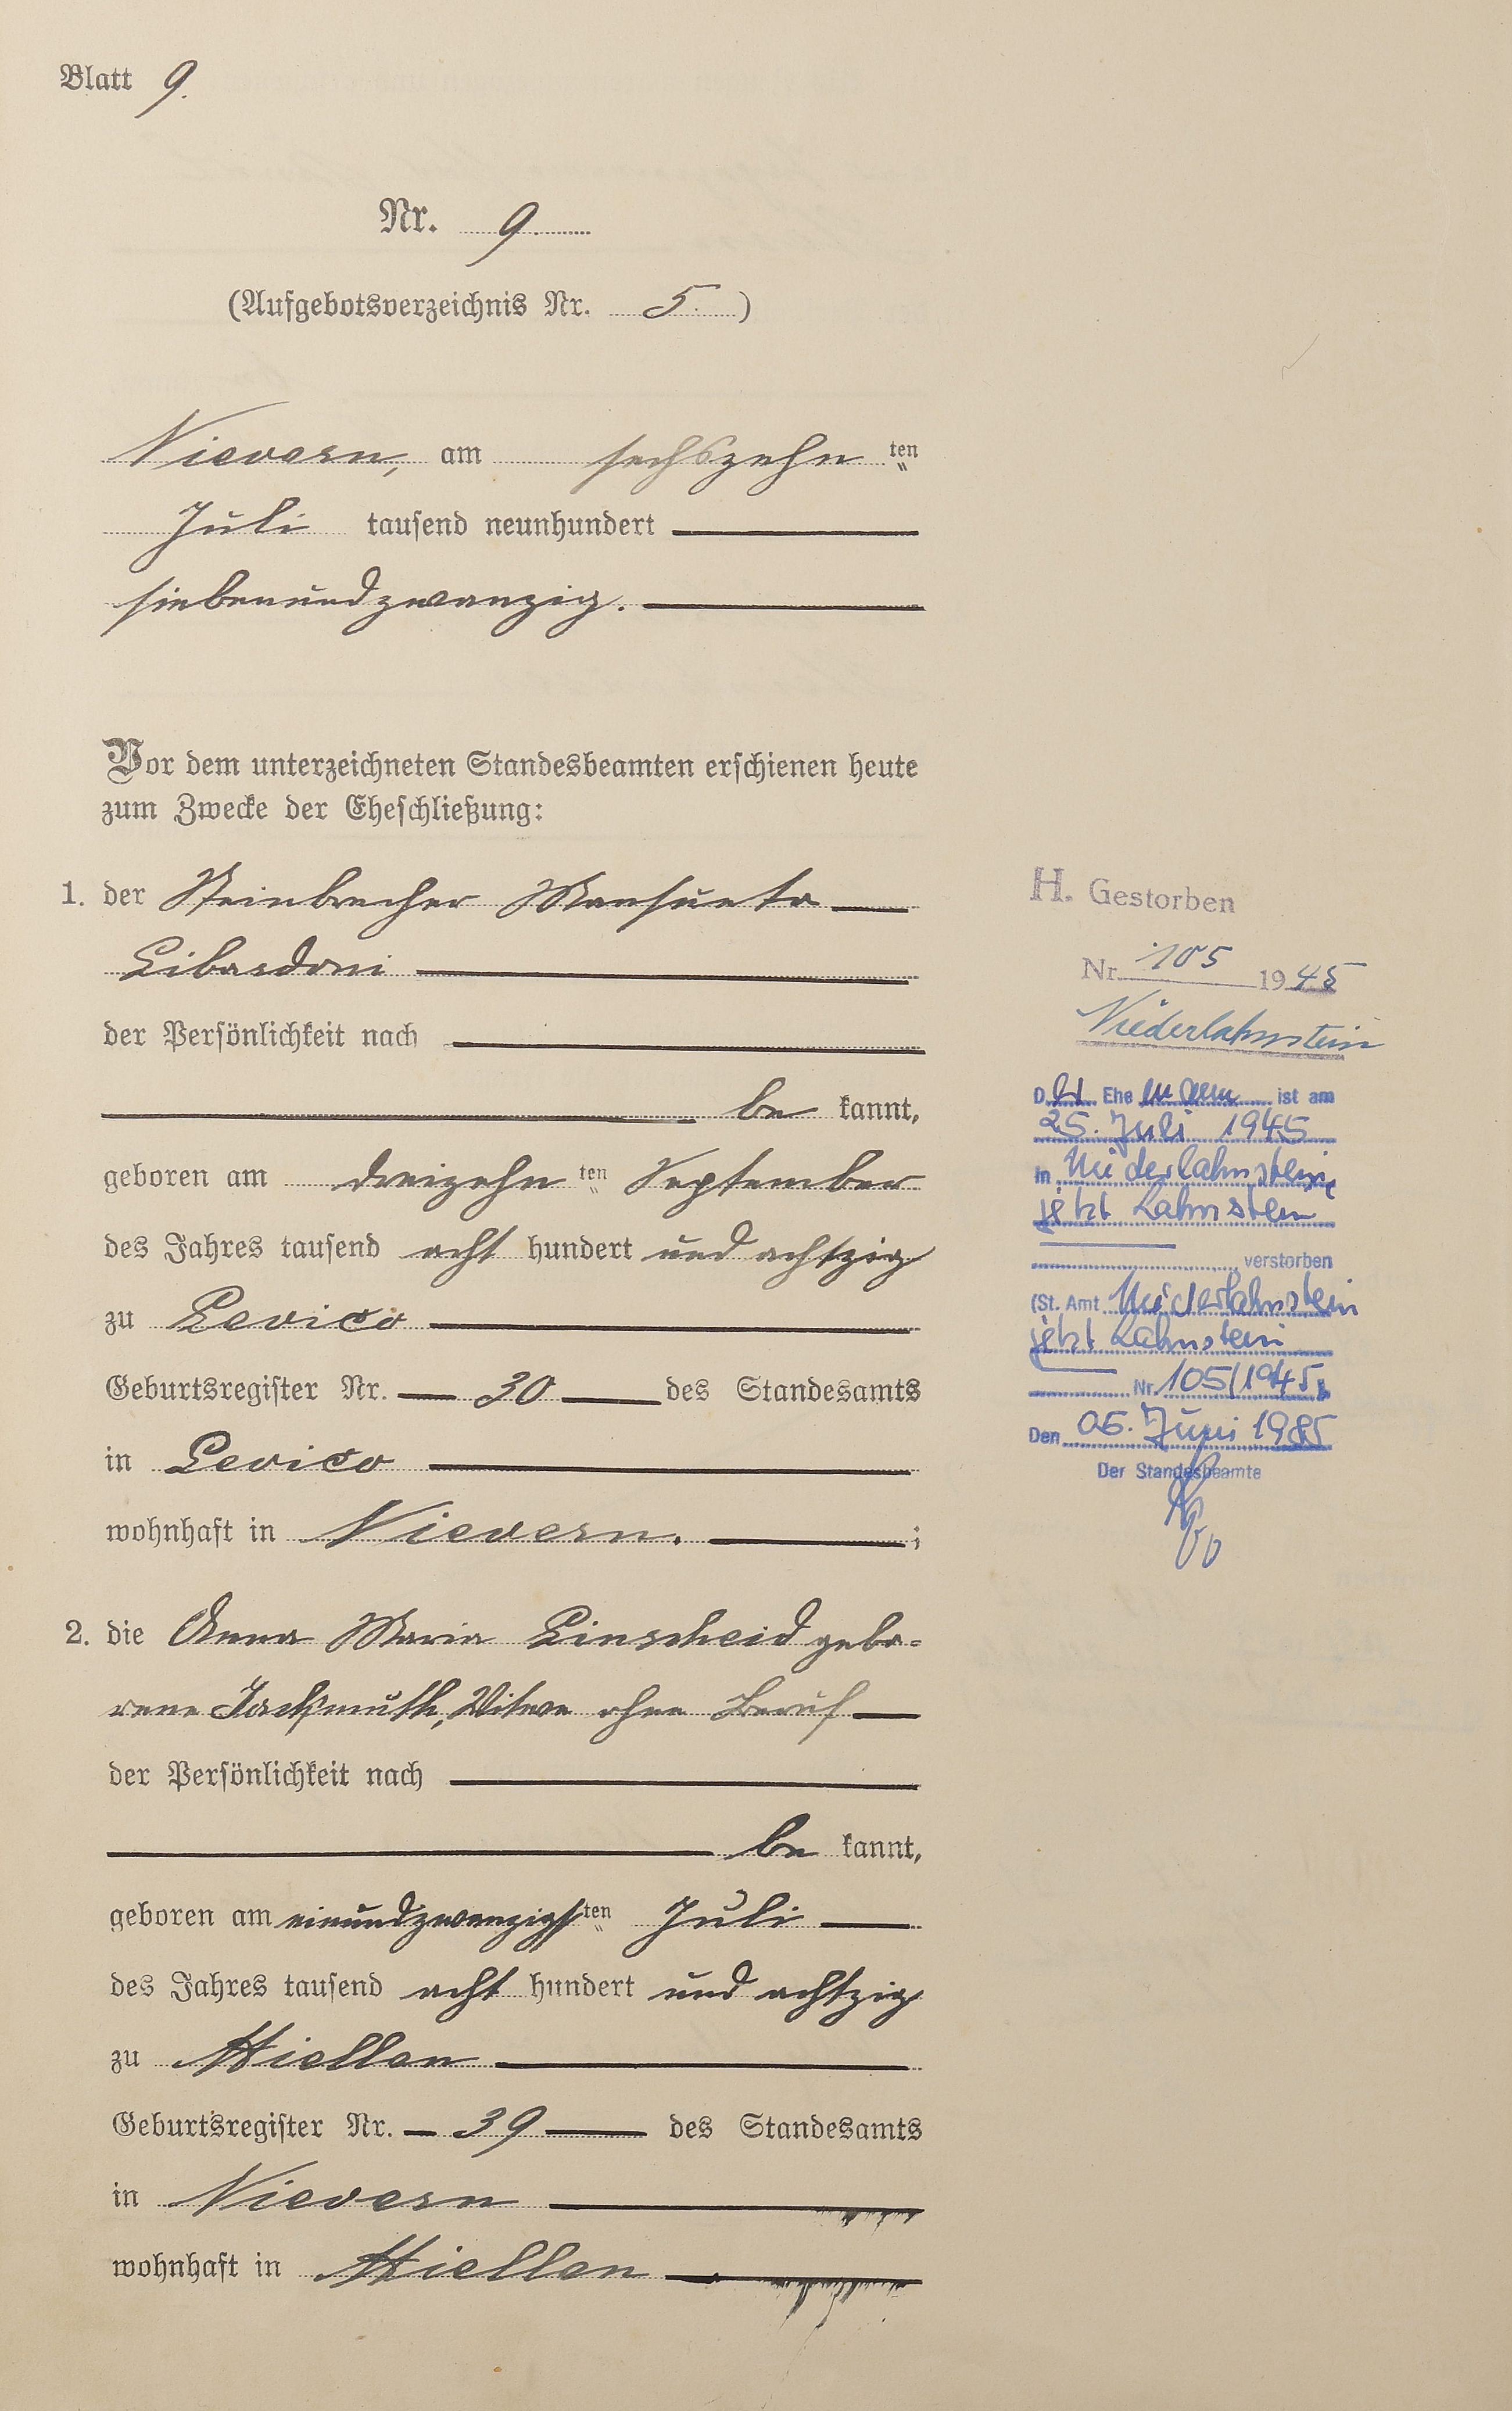 Blatt 9.
Nr. 9.
(Aufgebotsverzeichnis Nr. 5.)
Nievern, am sechszehn ten
Juli tausend neunhundert
siebenundzwanzig.
Vor dem unterzeichneten Standesbeamten erschienen heute
zum Zwecke der Eheschließung:
1. der Steinbrecher Mansueto
Libardoni
der Persönlichkeit nach
be kannt,
geboren am dreizehn ten September
des Jahres tausend acht hundert und achtzig
zu Levico
Geburtsregister Nr. 30 des Standesamts
in Levico
wohnhaft in Nievern. ;
2. die Anna Maria Linscheid gebo-
rene Jachmuth, Witwe ohne Beruf
der Persönlichkeit nach
be kannt,
geboren am einundzwanzigsten Juli
des Jahres tausend acht hundert und achtzig
zu Miellen
Geburtsregister Nr. 39 des Standesamts
in Nievern
wohnhaft in Miellen
H. Gestorben
Nr. 105 1945
Niederlahnstein
D. er Ehemann ist am
25. Juli 1945
in Niederlahnstein,
jetzt Lahnstein
verstorben
(St. Amt Niederlahnstein
jetzt Lahnstein
Nr. 105/1945)
Den 05. Juni 1985
Der Standesbeamte